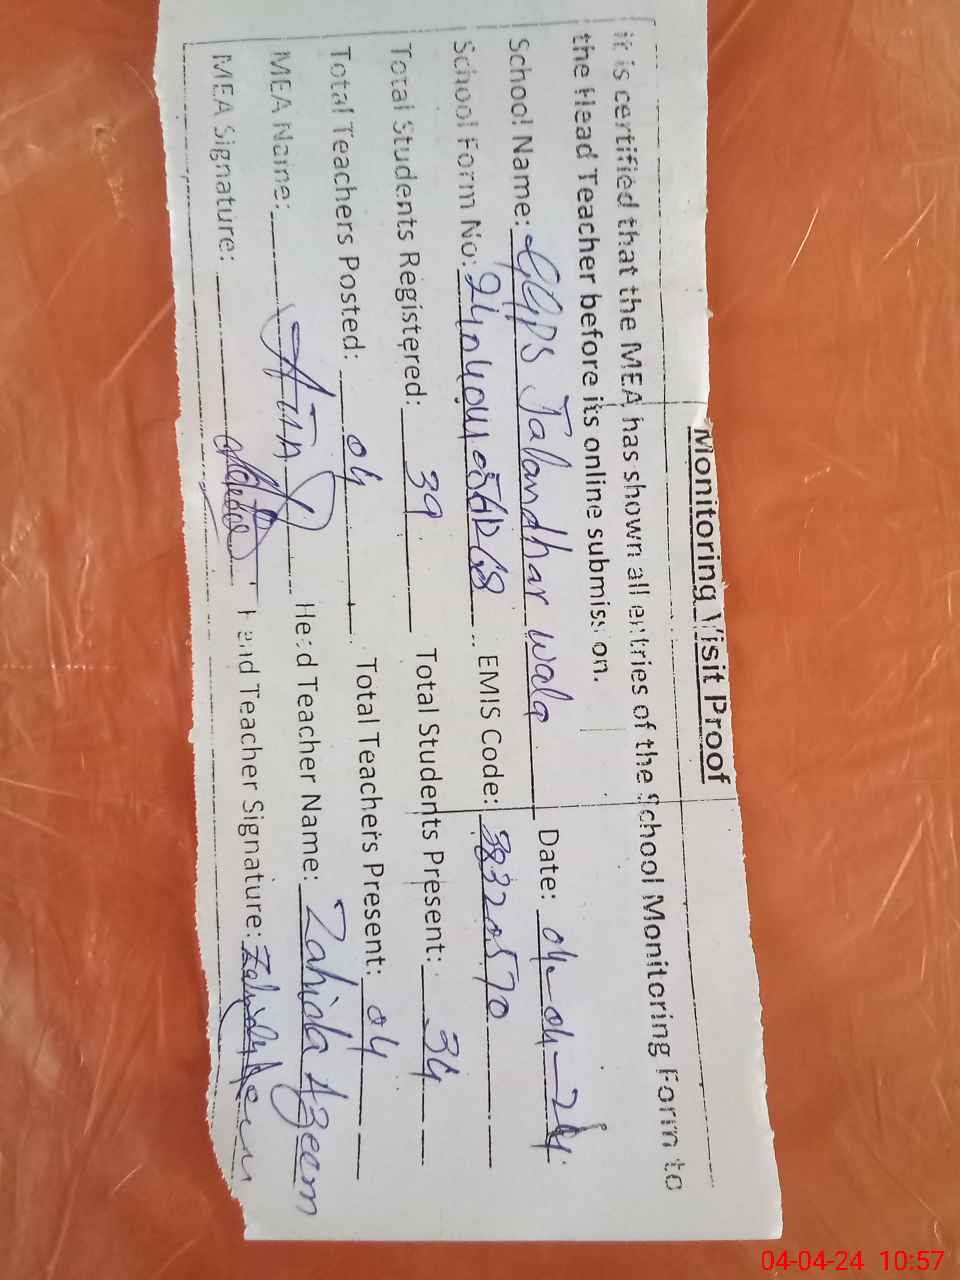 Monitoring Visit Proof
it is certified that the MEA has shown all entries of the School Monitoring Form to
the Head Teacher before its online submission.
School Name: GGPS Jalandhar wala Date: 04-04-24
School Form No: EMIS Code: 38320570
Total Students Registered: 39 Total Students Present: 34
Total Teachers Posted: 04 Total Teachers Present: 04
MEA Name: Head Teacher Name: Zahida Azeem
MEA Signature: Head Teacher Signature:
04-04-24 10:57